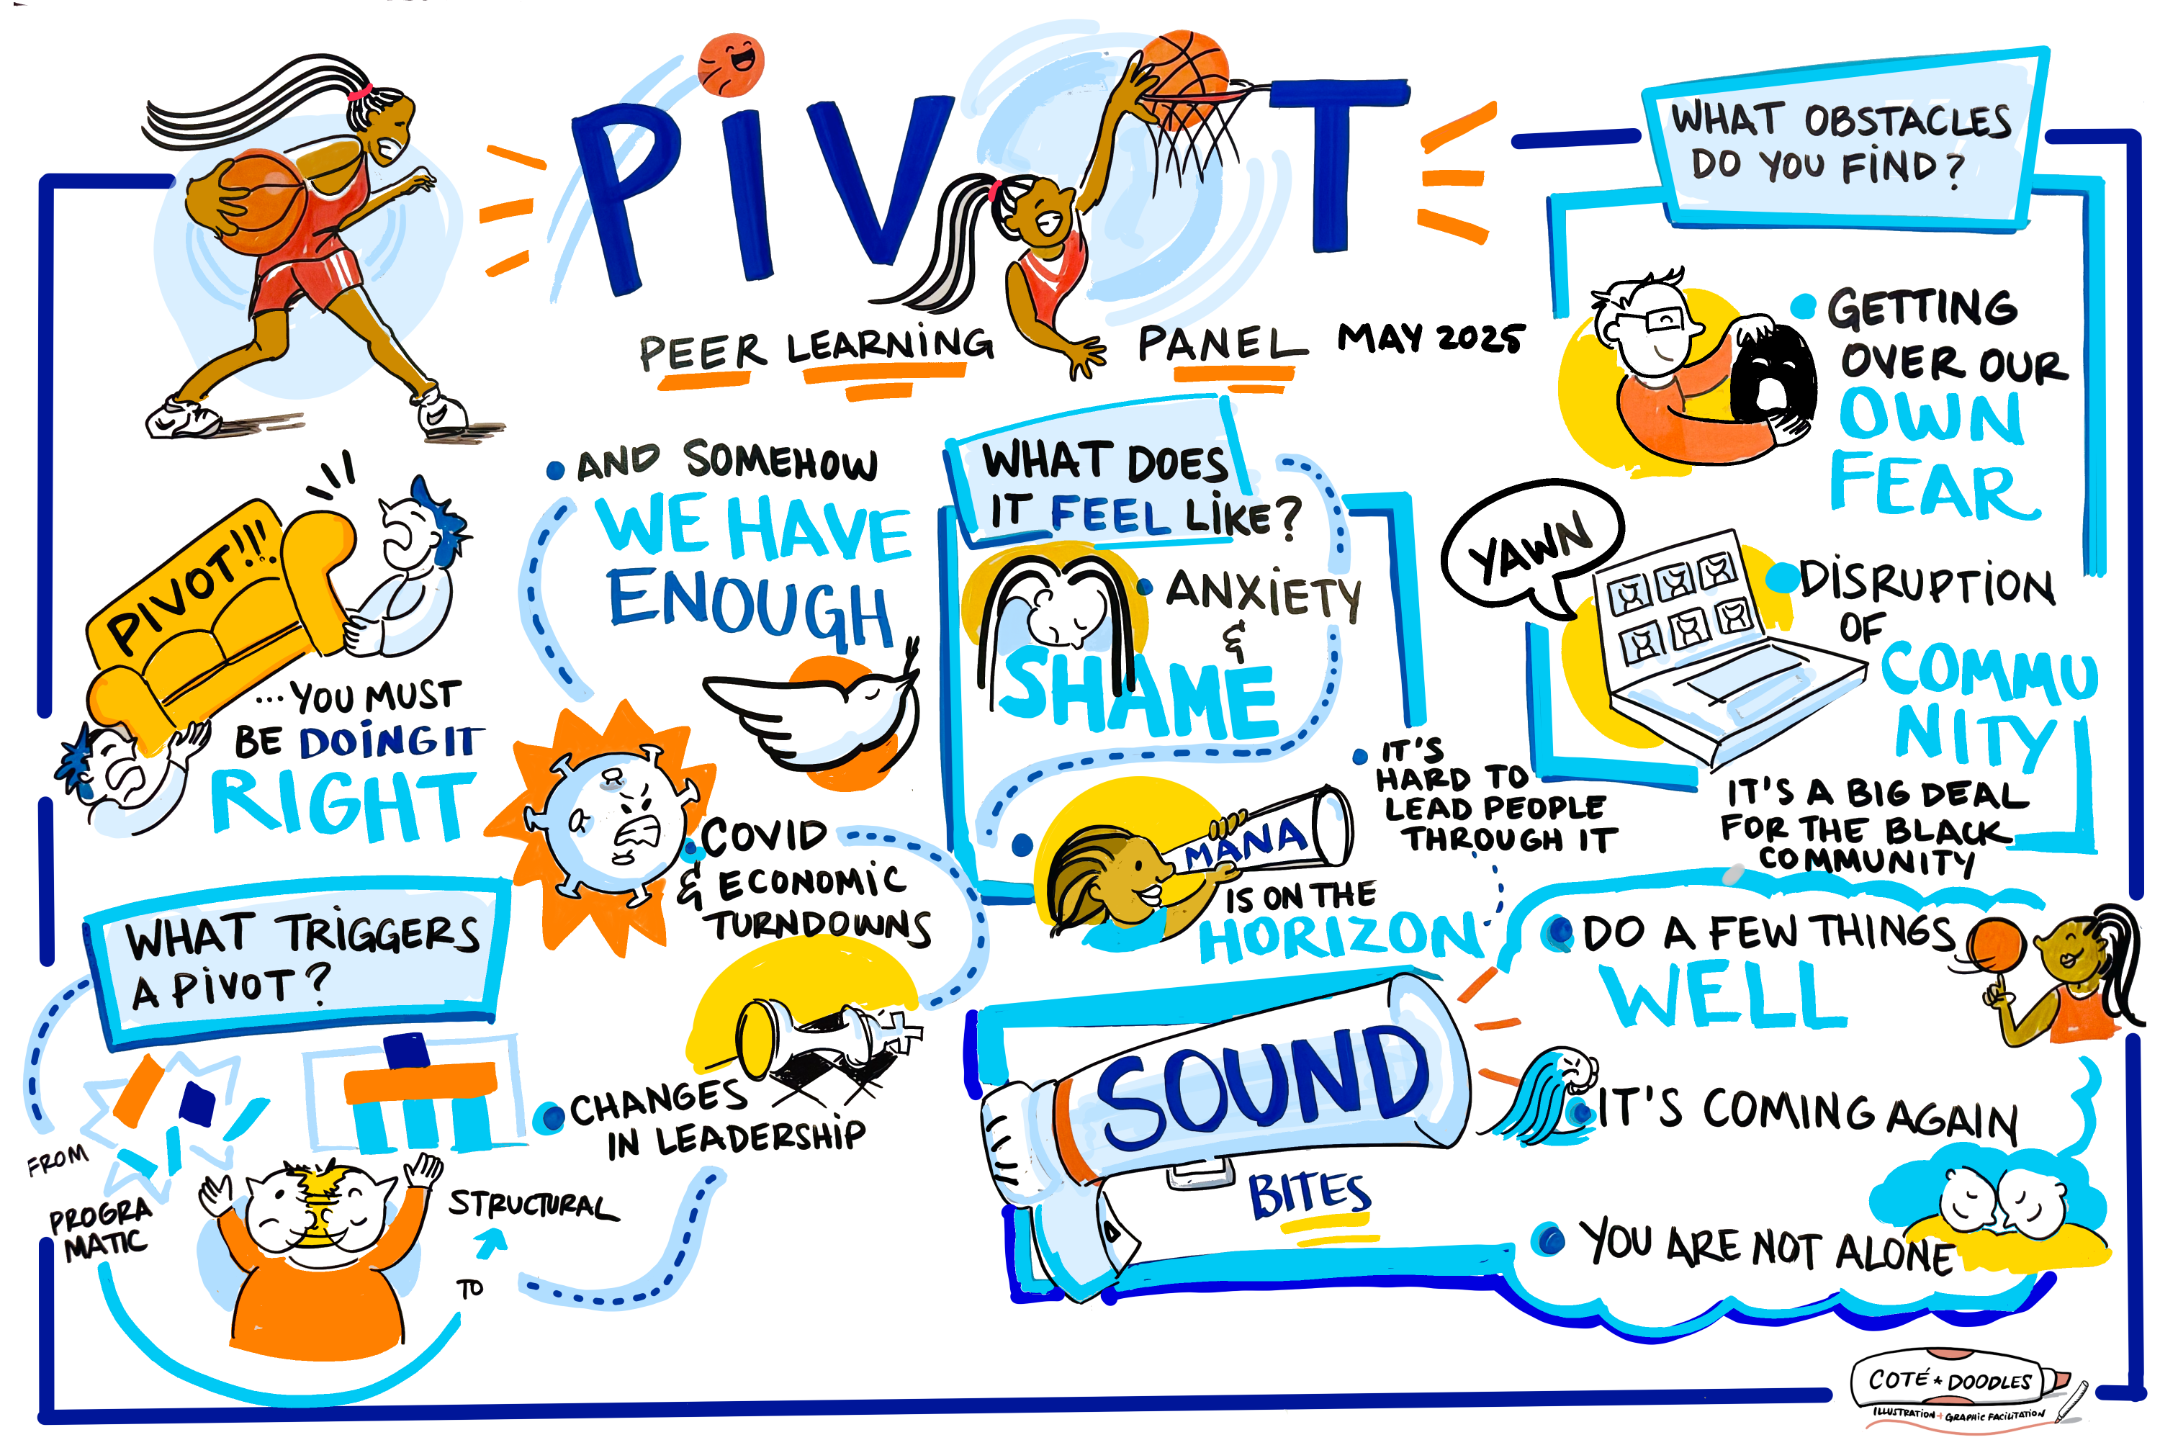 PIVOT
PEER LEARNING PANEL MAY 2025
PIVOT!!!
...YOU MUST
BE DOING IT
RIGHT
WHAT TRIGGERS
A PIVOT?
FROM
PROGRA
MATIC
TO
STRUCTURAL
CHANGES
IN LEADERSHIP
COVID
& ECONOMIC
TURNDOWNS
AND SOMEHOW
WE HAVE
ENOUGH
WHAT DOES
IT FEEL LIKE?
ANXIETY
&
SHAME
MANA
IS ON THE
HORIZON
IT'S
HARD TO
LEAD PEOPLE
THROUGH IT
WHAT OBSTACLES
DO YOU FIND?
GETTING
OVER OUR
OWN
FEAR
YAWN
DISRUPTION
OF
COMMU
NITY
IT'S A BIG DEAL
FOR THE BLACK
COMMUNITY
SOUND
BITES
DO A FEW THINGS
WELL
IT'S COMING AGAIN
YOU ARE NOT ALONE
COTÉ★DOODLES
ILLUSTRATION + GRAPHIC FACILITATION